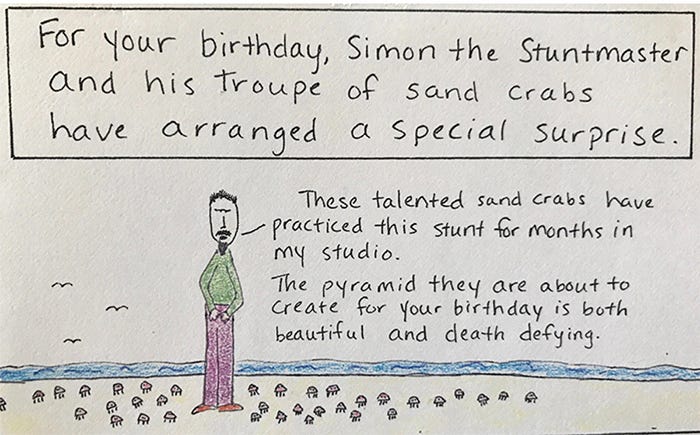 For your birthday, Simon the Stuntmaster
and his troupe of sand crabs
have arranged a special surprise.
These talented sand crabs have
practiced this stunt for months in
my studio.
The pyramid they are about to
create for your birthday is both
beautiful and death defying.